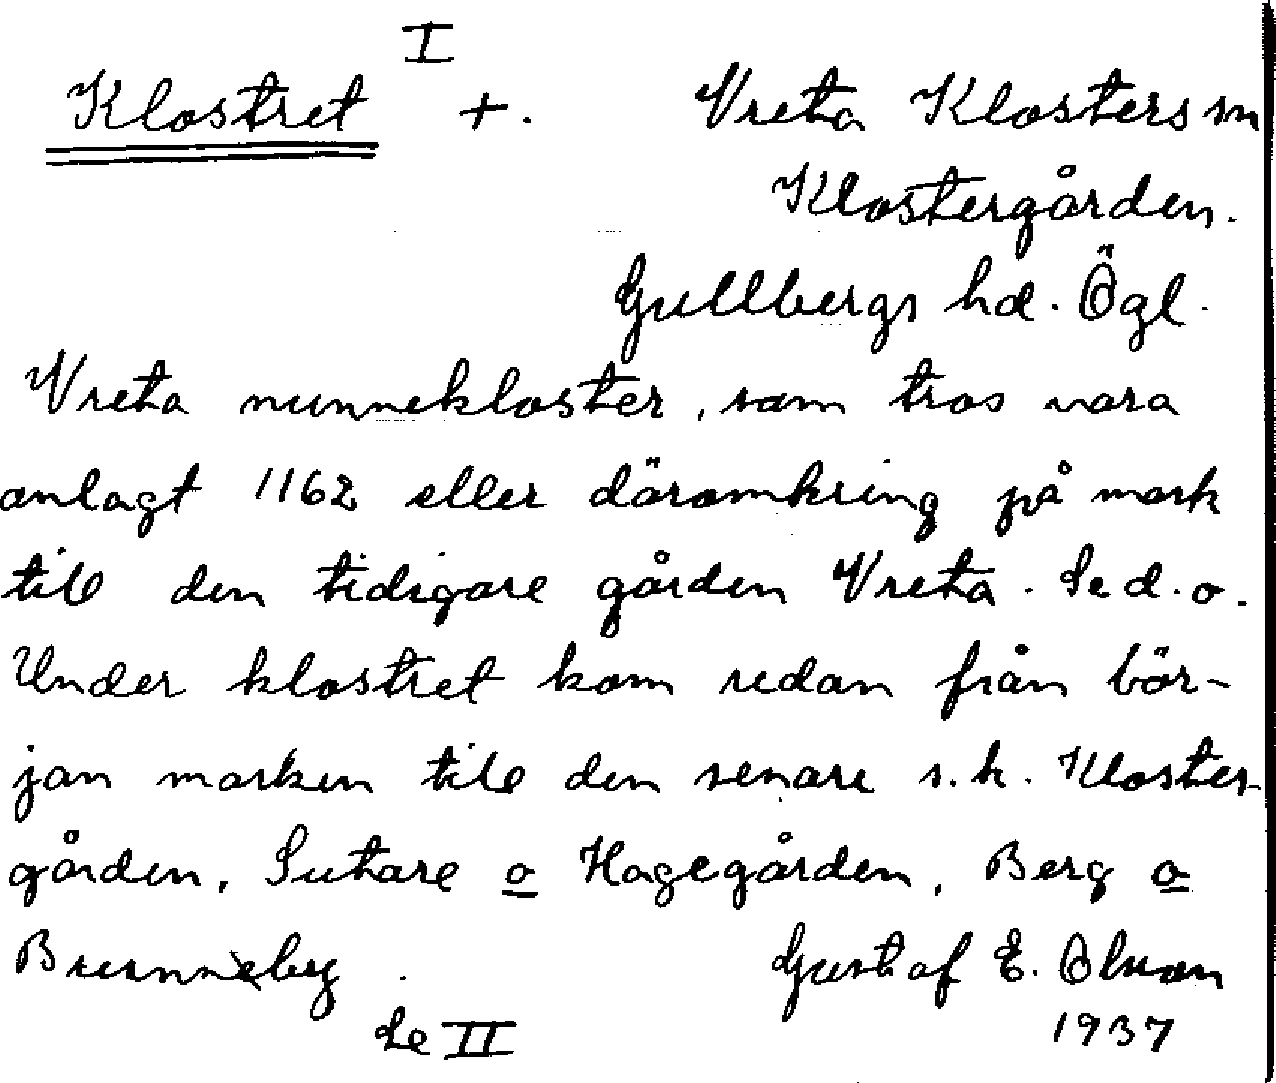 I
Klostret +. Vreta Klosters sn
Klostergården.
Gullbergs hd. Ögl.
Vreta nunnekloster, som tros vara
anlagt 1162 eller däromkring på mark
till den tidigare gården Vreta. Se d. o.
Under klostret kom redan från bör-
jan marken till den senare s.k. Kloster-
gården, Sutare o Hagegården, Berg o
Brunneby.
Gustaf E. Olsson
Se II
1937